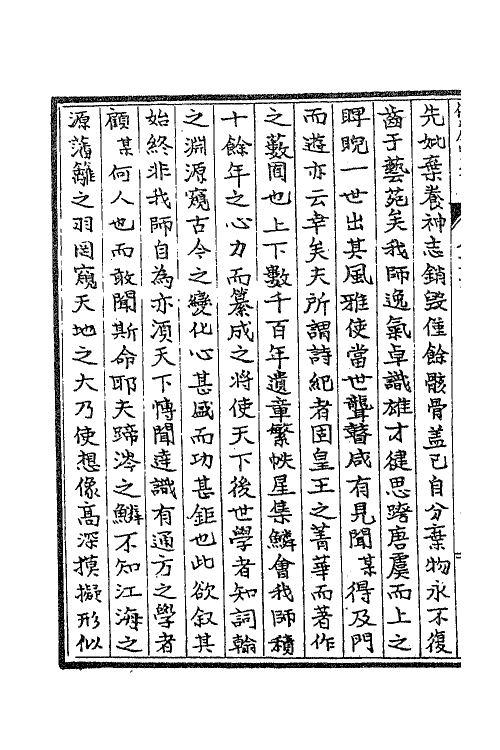 先妣棄養神志銷毀僅餘骸骨蓋已自分棄物永不復
齒于藝苑矣我師逸氣卓識雄才健思躋唐虞而上之
睥睨一世出其風雅使當世聾瞽咸有見聞某得及門
而遊亦云幸矣夫所謂詩紀者固皇王之菁華而著作
之藪囿也上下數千百年遺章繁帙星集鱗會我師積
十餘年之心力而纂成之將使天下後世學者知詞翰
之淵源窺古今之變化心甚盛而功甚鉅也此欲叙其
始終非我師自為亦須天下慱聞達識有通方之學者
顧某何人也而敢聞斯命耶夫蹄涔之鱗不知江海之
源藩籬之羽罔窺天地之大乃使想像高深摸擬形似